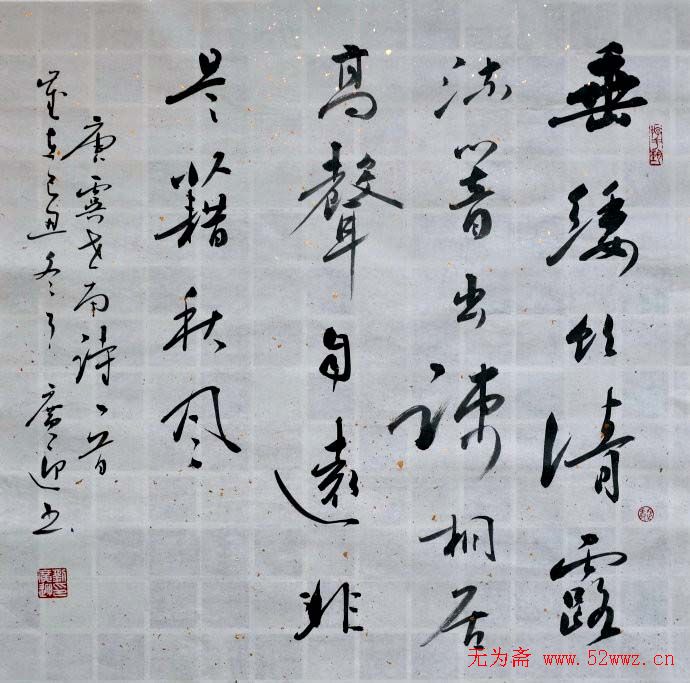 垂緌饮清露
流響出疎桐居
高聲自遠非
是藉秋风
唐虞世南詩一首
歲在己丑冬月廣迎书
无为斋 www.52wwz.cn